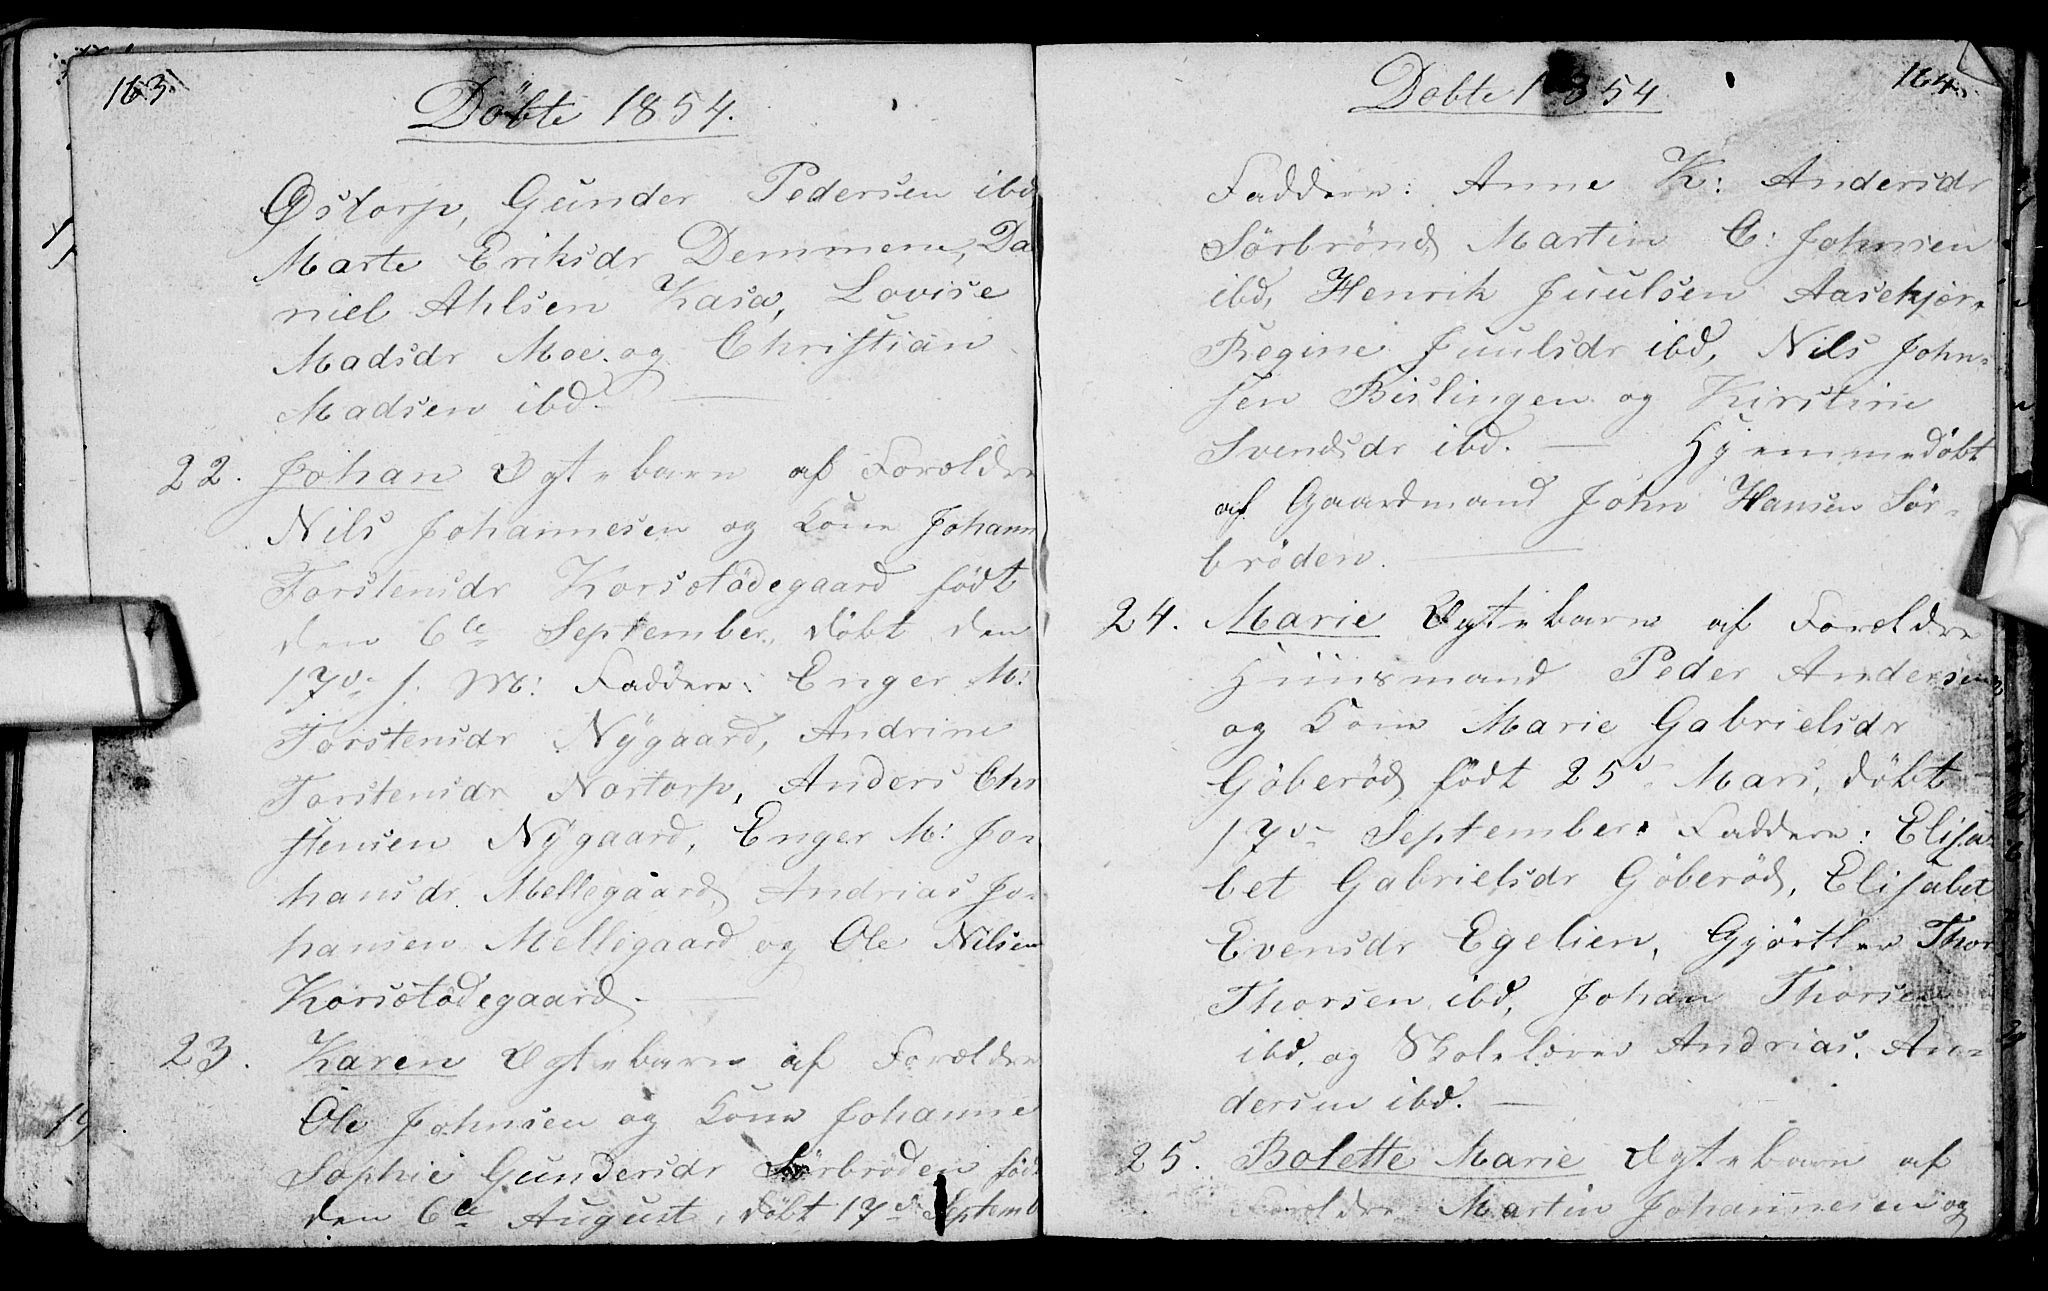 163.
Döbte 1854.
Østorp, Gunder Pedersen ibd,
Marte Eriksdr Demmene, Da
niel Ahlsen Kasa, Lovise
Madsdr Moe og Christian
Madsen ibd.
22. Johan Ægtebarn af Forældre
Nils Johannesen og Kone Johann
Torstensdr Korsetödegaard født
den 6te September, döbt den
17de s. M: Faddere: Enger M:
Torstensdr Nÿgaard, Andrine
Torstensdr Nortorp, Anders Chr
stensen Nÿgaard, Enger M: Jo-
hansdr Mellegaard, Andrias Jo-
hansen Mellegaard og Ole Nilsen
Korsetödegaard.
23. Karen Ægtebarn af Forældre
Ole Johnsen og Kone Johanne
Sophie Gundersdr Sörbröden föd
den 6te August, döbt 17de Septemb
164.
Döbte 1854
Faddere: Anne K: Andersdr
Sörbrönd, Martin C: Johnsen
ibd, Henrik Juulsen Aasekjær,
Regine Juulsdr ibd, Nils John-
sen Bislingen og Kirstine
Svendsdr ibd. — Hjemmedöbt
af Gaardmand John Hansen Sör-
bröden.
24. Marie Ægtebarn af Forældre
Huusmand Peder Andersen
og Kone Marie Gabrielsdr
Göberöd, födt 25de Mars, döbt
17de September. Faddere: Elisa-
bet Gabrielsdr Göberöd, Elisabet
Evensdr Egelien, Gjörtler Thor
Thorsen ibd, Johan Thorsen
ibd, og Skolelærer Andrias An-
dersen ibd. —
25. Bolette Marie Ægtebarn af
Forældre Martin Johannesen og